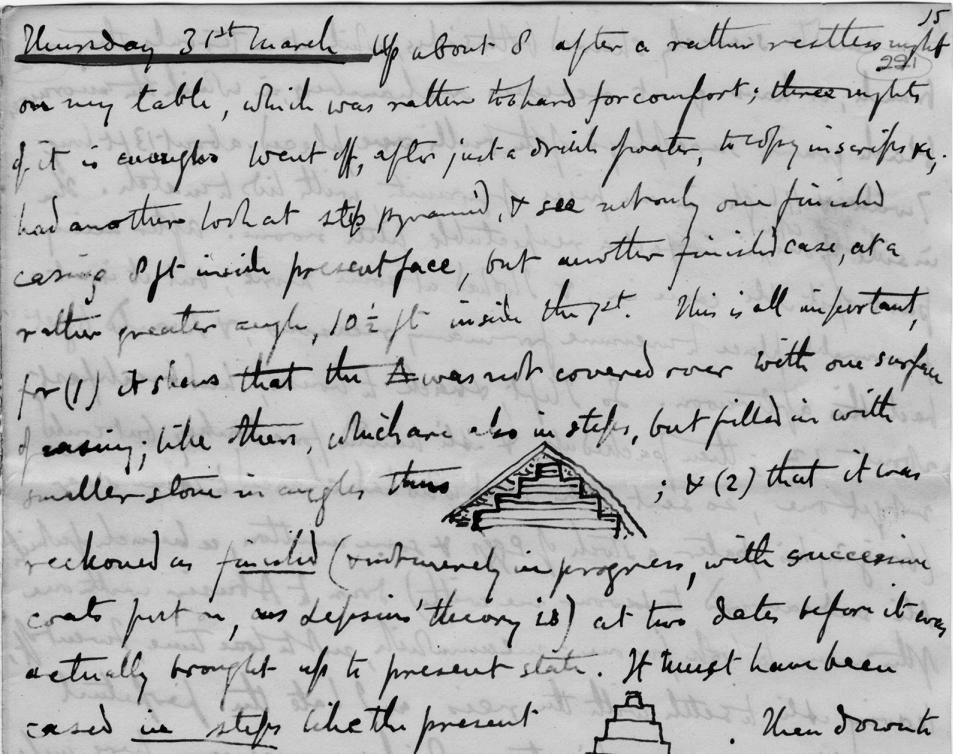 15
Thursday 31st March Up about 8 after a rather restless night
221
on my table, which was rather too hard for comfort; three nights
of it is enough. Went off, after just a drink of water, to copy inscrips &c;
had another look at step pyramid, & see not only one finished
casing 8 ft inside present face, but another finished case, at a
rather greater angle, 10½ ft inside the 1st. This is all important,
for (1) it shews that the Δ was not covered over with one surface
of casing; like others, which are also in steps, but filled in with
smaller stone in angles thus ; & (2) that it was
reckoned as finished (& not merely in progress, with successive
coats put on, as Lepsius' theory is) at two dates before it was
actually brought up to present state. It must have been
cased in steps like the present . Then down to